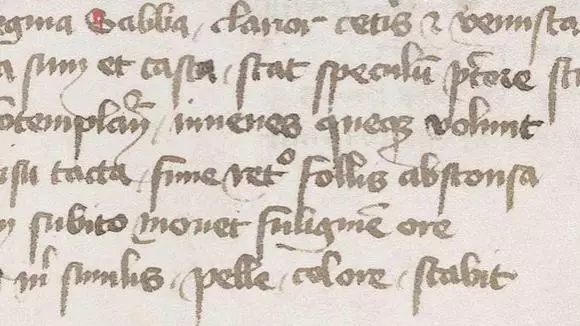 egina Sabba, clanor cetis & venusta
a sum et casta, stat speculū p̄tore sta
ɔtemplam̄, iuuenes queqȝ volunt
isu tacta, fune ret⁰ follis abstonsa
n subito mouet fuliginē ore
t m̄ similis, pelle, colore, stabit